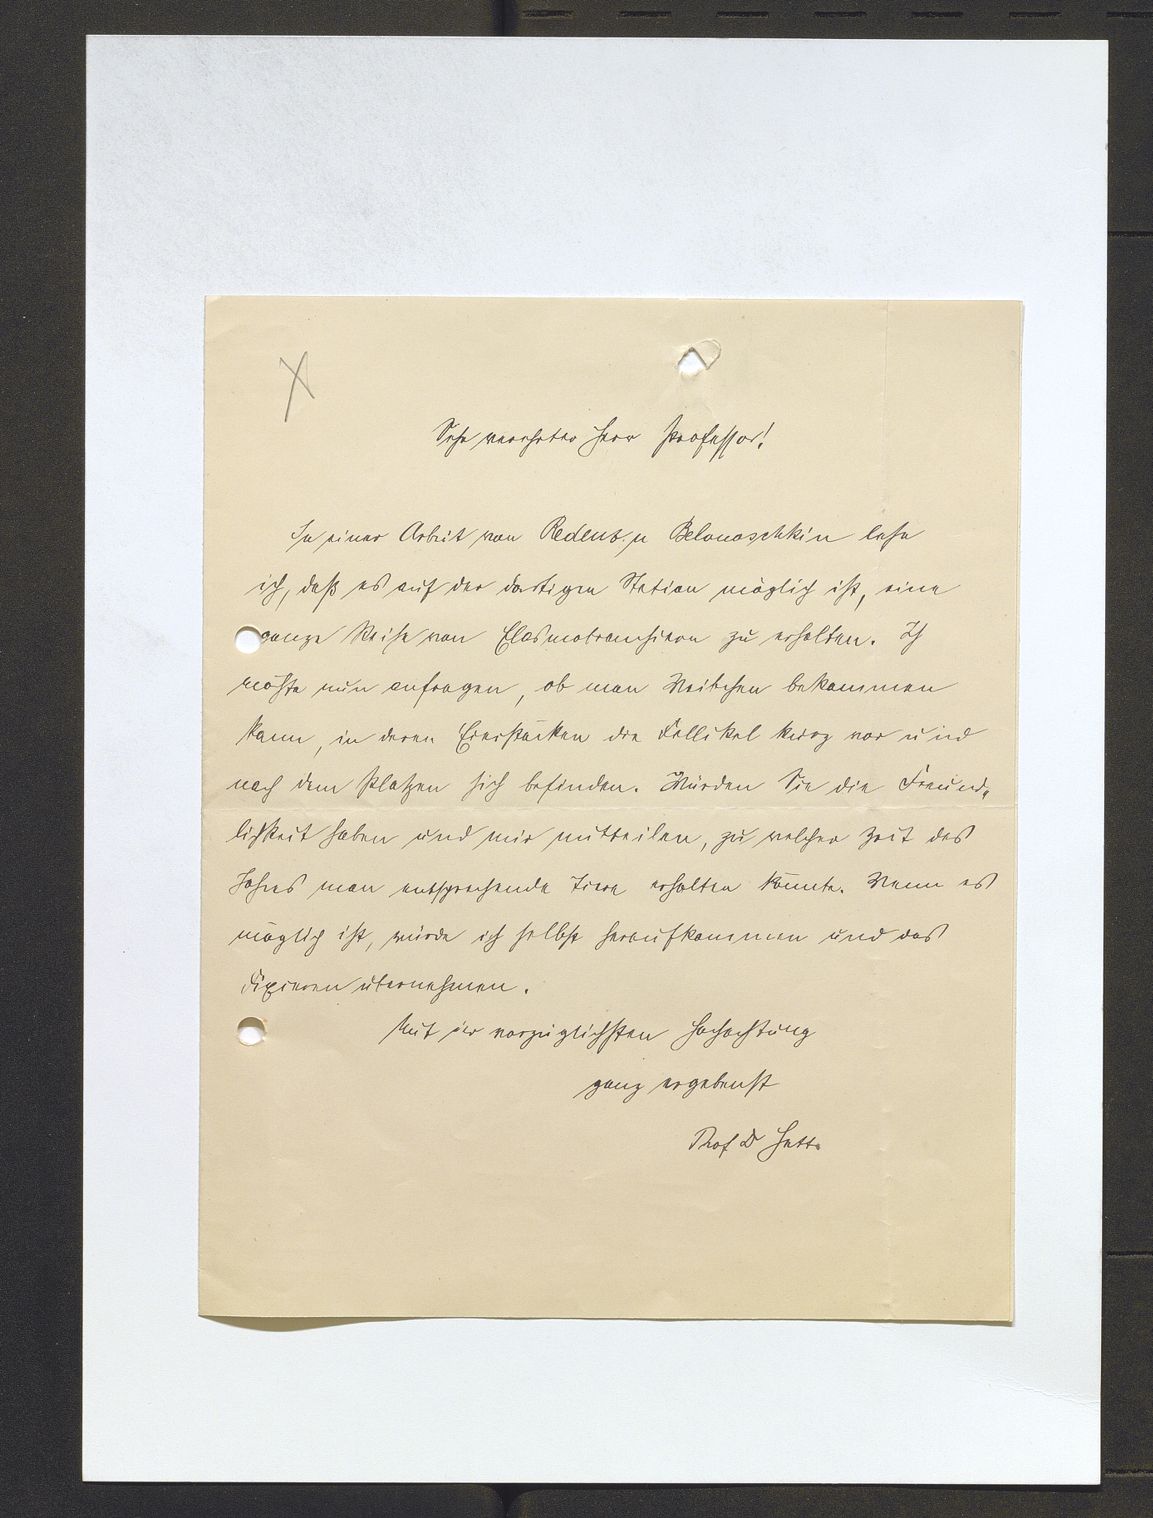 Sehr verehrter Herr Professor!
In einer Arbeit von Redenz u Belonoschkin lese
ich, daß es auf der dortigen Station möglich ist, eine
ganze Reihe von Elasmobranchiern zu erhalten. Ich
möchte nun anfragen, ob man Weibchen bekommen
kann, in deren Eierstöcken die Follikel kurz vor und
nach dem Platzen sich befinden. Würden Sie die Freund-
lichkeit haben und mir mitteilen, zu welcher Zeit des
Jahres man entsprechende Tiere erhalten könnte. Wenn es
möglich ist, würde ich selbst heraufkommen und das
Fixieren übernehmen.
Mit der vorzüglichsten Hochachtung
ganz ergebenst
Prof Dr